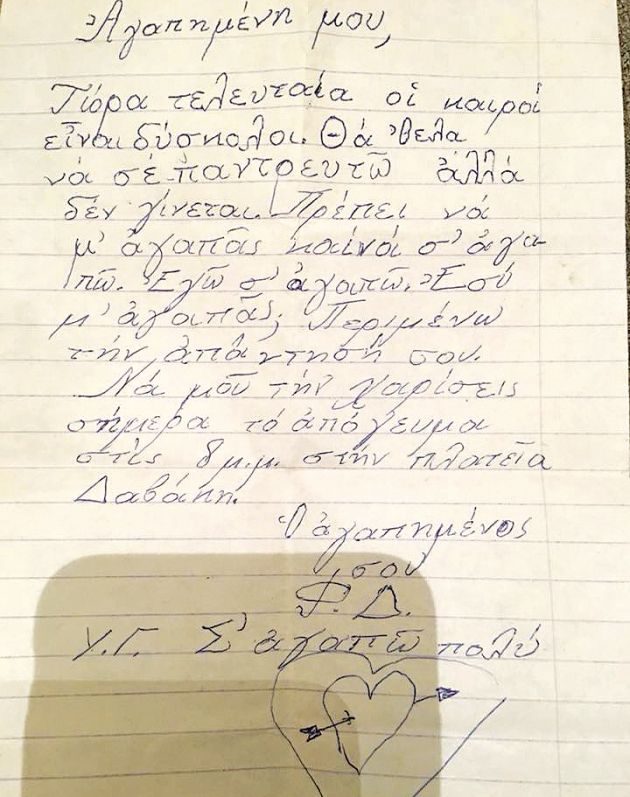 Ἀγαπημένη μου,
Τώρα τελευταία οἱ καιροί
εἶναι δύσκολοι. Θά ἤθελα
νά σέ παντρευτῶ ἀλλά
δέν γίνεται. Πρέπει νά
μ' ἀγαπᾶς καί νά σ' ἀγα-
πῶ. Ἐγῶ σ' ἀγαπῶ. Ἐσύ
μ' ἀγαπᾶς; Περιμένω
τήν ἀπάντησή σου.
Νά μοῦ τήν χαρίσεις
σήμερα τό ἀπόγευμα
στίς 8 μ.μ. στήν πλατεῖα
Δαβάκη.
Ὁ ἀγαπημένος
σου
Φ. Δ.
Υ.Γ. Σ' ἀγαπῶ πολύ